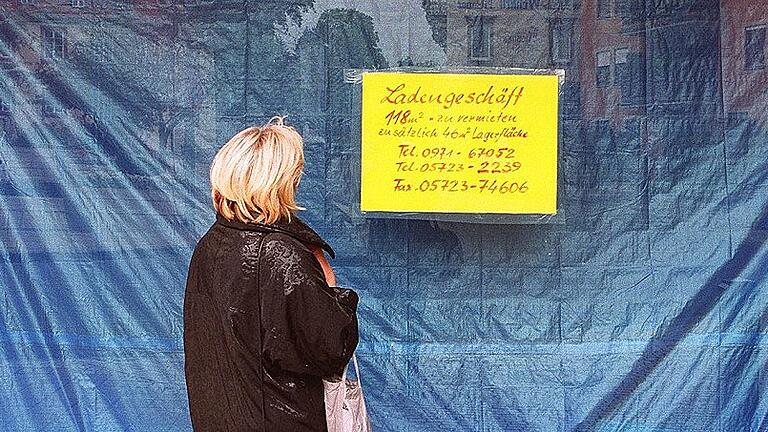 Ladengeschäft
118m² - zu vermieten
zusätzlich 46m² Lagerfläche
Tel. 0971 - 67052
Tel. 05723 - 2239
Fax. 05723-74606